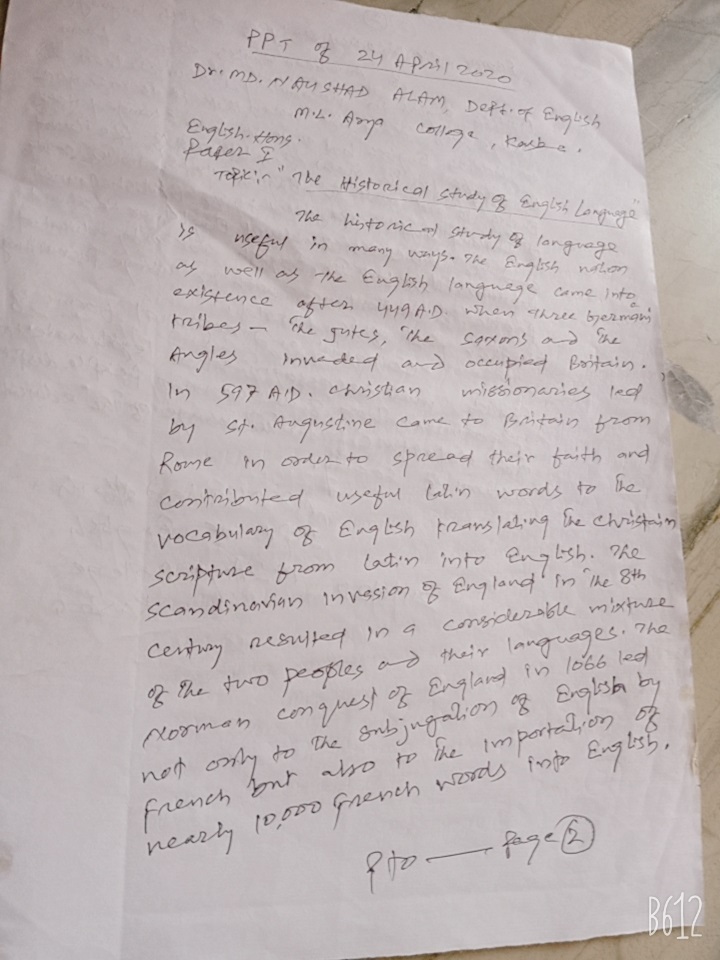 PPT of 24 April 2020
Dr. MD. NAUSHAD ALAM, Dept. of English
M.L. Arya College, Kasba.
English. Hons.
Paper I
Topic:- "The Historical study of English Language"
The historical study of language
is useful in many ways. The English nation
as well as the English language came into
existence after 449 A.D. when three Germanic
tribes — The Jutes, The Saxons and The
Angles invaded and occupied Britain.
In 597 A.D. Christian missionaries led
by St. Augustine came to Britain from
Rome in order to spread their faith and
contributed useful Latin words to The
vocabulary of English translating The Christain
scripture from Latin into English. The
Scandinavian invasion of England in The 8th
century resulted in a considerable mixture
of The two peoples and their languages. The
Norman conquest of England in 1066 led
not only to The subjugation of English by
French but also to The importation of
nearly 10,000 French words into English.
Pto — Page 2
B612